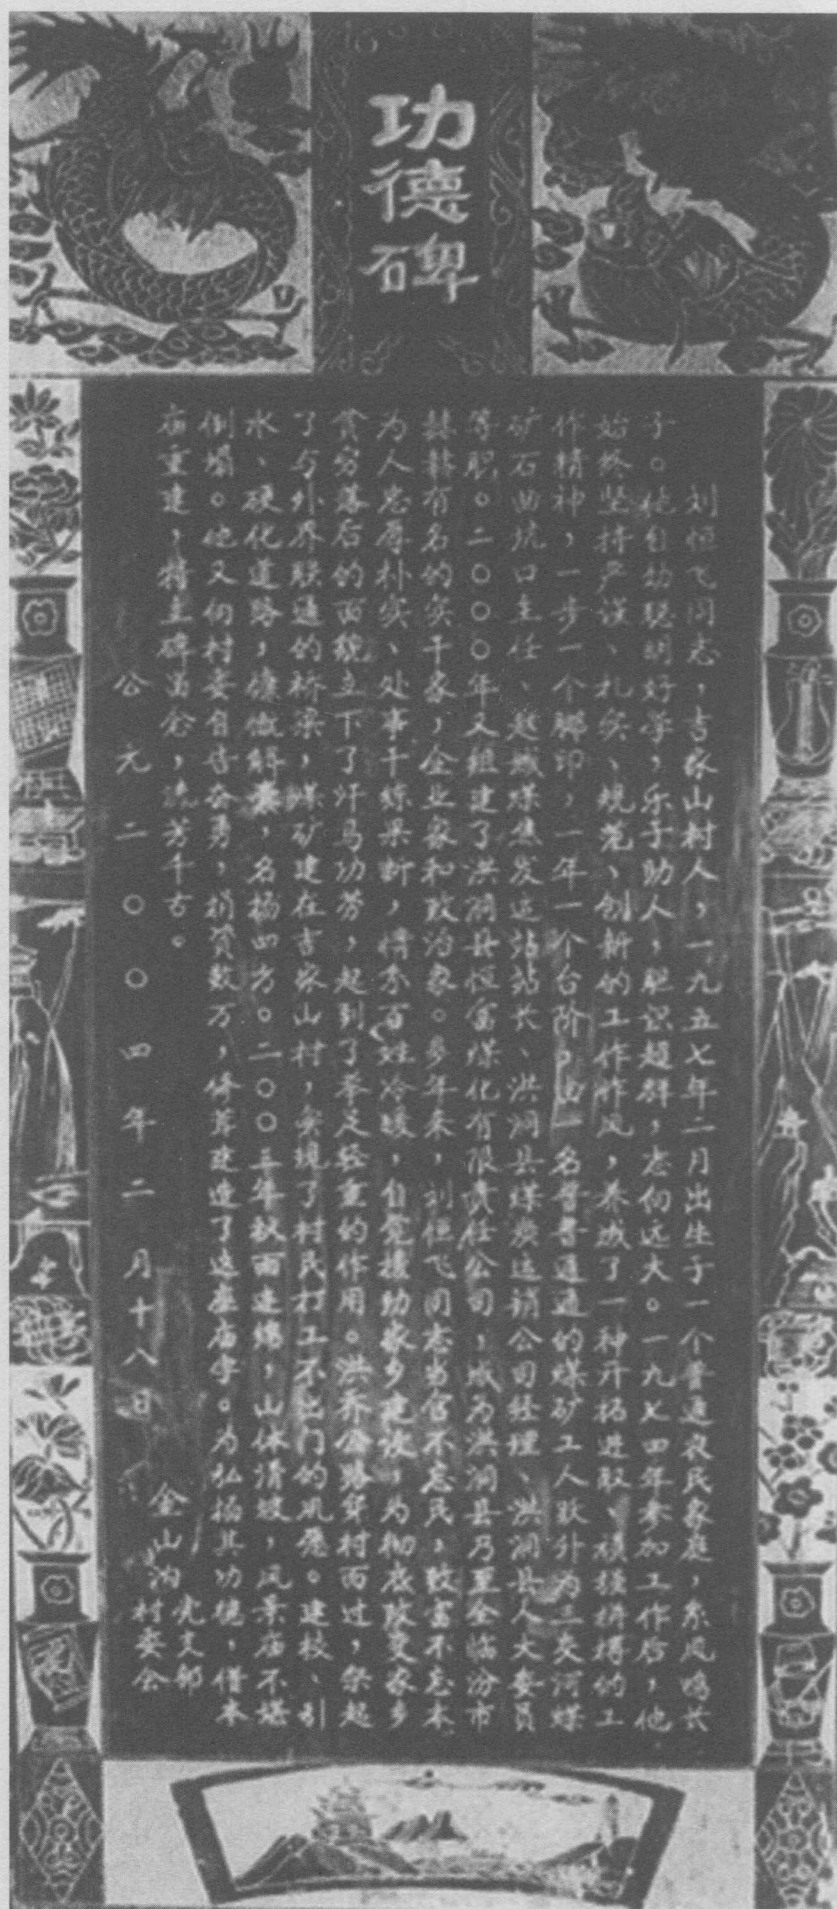 功德碑
刘恒飞同志，吉家山村人，一九五七年二月出生于一个普通农民家庭，系凤鸣长
子。他自幼聪明好学，乐于助人，胆识超群，志向远大。一九七四年参加工作后，他
始终坚持严谨、扎实、规范、创新的工作作风，养成了一种开拓进取、顽强拼搏的工
作精神，一步一个脚印，一年一个台阶，由一名普普通通的煤矿工人跃升为三交河煤
矿石曲坑口主任、赵城煤焦发运站站长、洪洞县煤炭运销公司经理、洪洞县人大委员
等职。二〇〇〇年又组建了洪洞县恒富煤化有限责任公司，成为洪洞县乃至全临汾市
赫赫有名的实干家，企业家和政治家。多年来，刘恒飞同志当官不忘民，致富不忘本，
为人忠厚朴实、处事干练果断，情系百姓冷暖，自觉援助家乡建设，为彻底改变家乡
贫穷落后的面貌立下了汗马功劳，起到了举足轻重的作用。洪乔公路穿村而过，架起
了与外界联通的桥梁，煤矿建在吉家山村，实现了村民打工不出门的夙愿。建校、引
水、硬化道路，慷慨解囊，名扬四方。二〇〇三年秋雨连绵，山体滑坡，风景庙不堪
倒塌。他又向村委自告奋勇，捐资数万，修葺建造了这座庙宇。为弘扬其功德，借本
庙重建，特立碑留念，流芳千古。
金山沟 党支部
村委会
公元二〇〇四年二月十八日